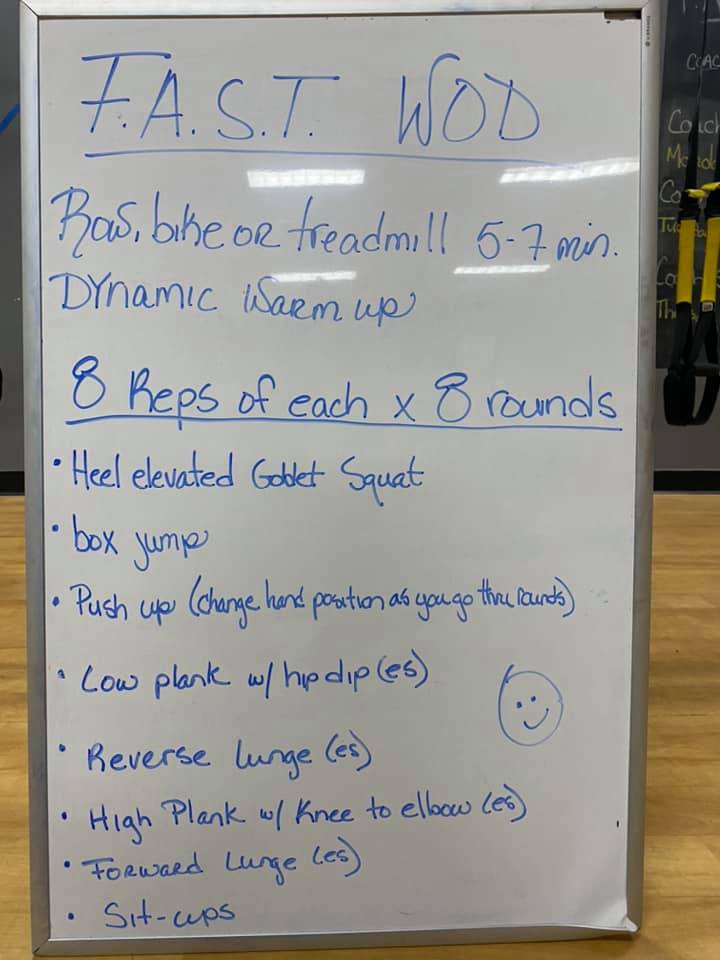 F.A.S.T. WOD
Row, bike or treadmill 5-7 min.
Dynamic Warm up
8 Reps of each x 8 rounds
• Heel elevated Goblet Squat
• box jump
• Push up (change hand position as you go thru rounds)
• Low plank w/ hip dip (es)
• Reverse lunge (es)
• High Plank w/ Knee to elbow (es)
• Forward Lunge (es)
• Sit-ups